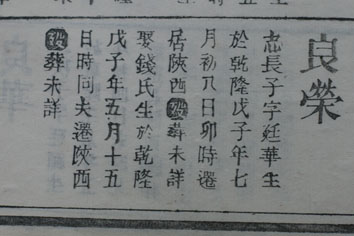 良榮
志長子字廷華生
於乾隆戊子年七
月初八日卯時遷
居陝西歿葬未詳
娶錢氏生於乾隆
戊子年五月十五
日時同夫遷陝西
歿葬未詳